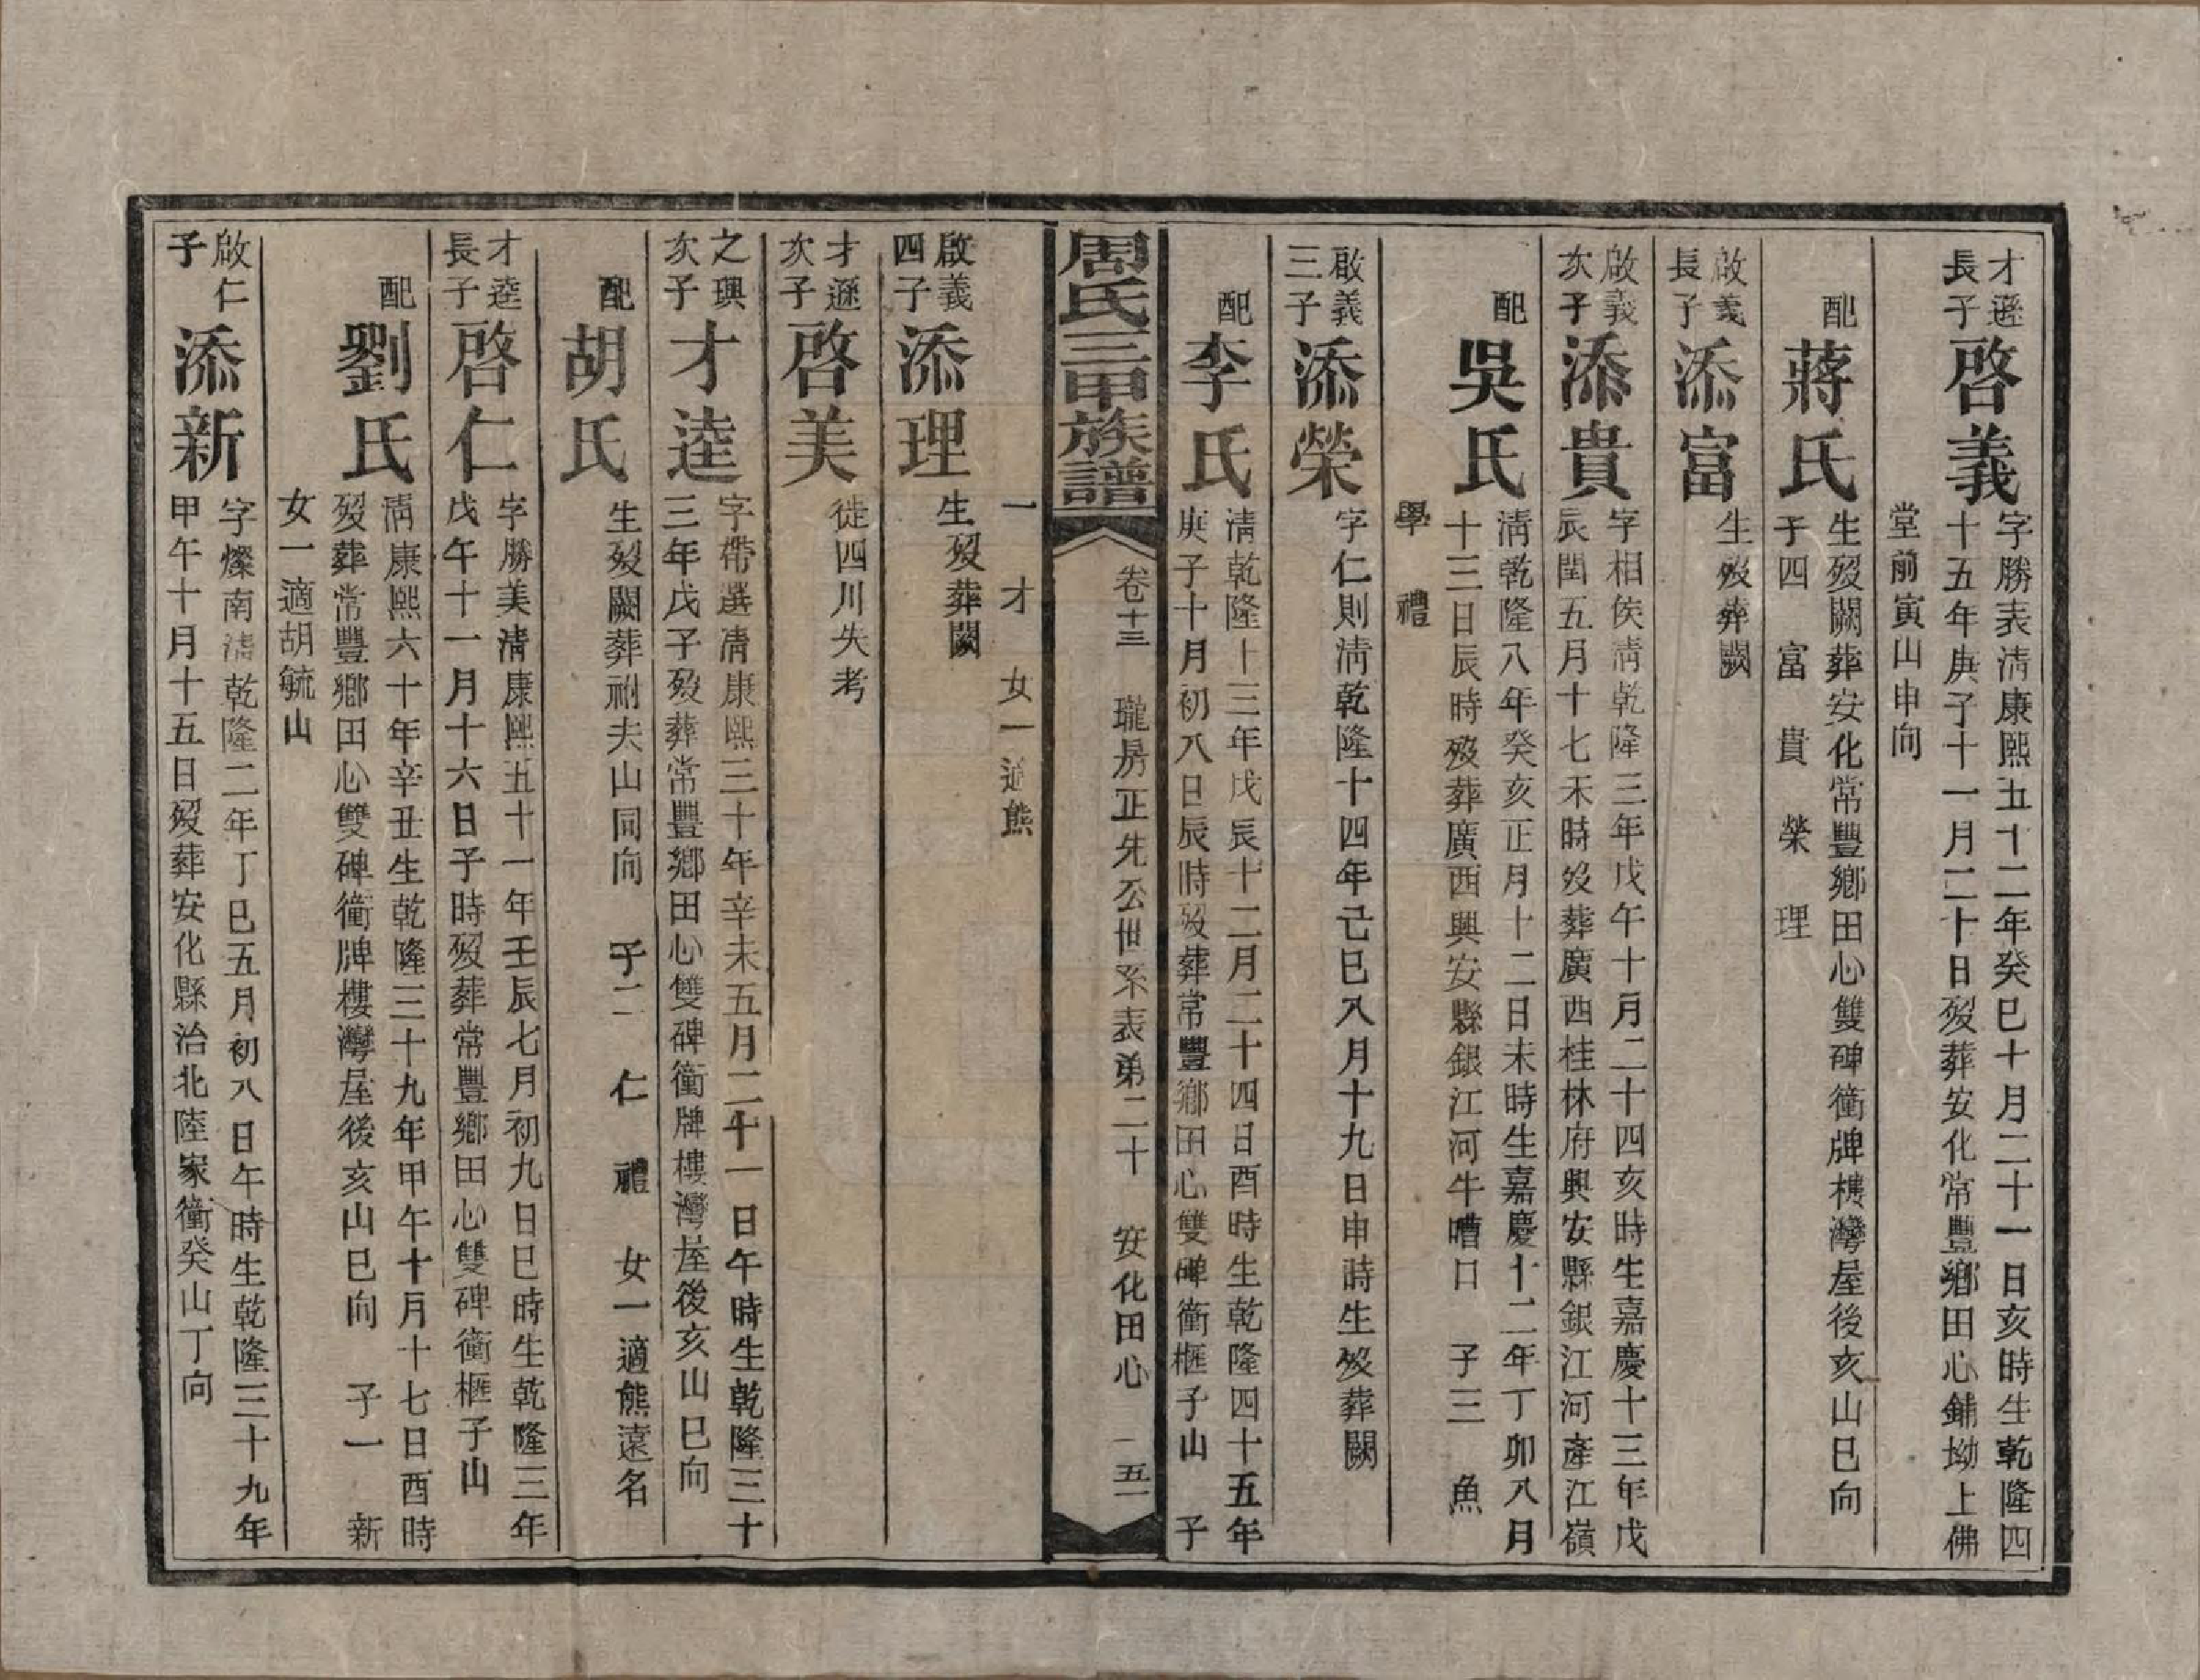 才遜
長子
啓義
字勝表淸康熙五十二年癸巳十月二十一日亥時生乾隆四
十五年庚子十一月二十日歿葬安化常豐鄉田心鋪坳上佛
堂前寅山申向
配
蔣氏
生歿闕葬安化常豐鄉田心雙碑衝牌樓灣屋後亥山巳向
子四　富　貴　榮　理
啟義
長子
添富
生歿葬闕
啟義
次子
添貴
字相侯淸乾隆三年戊午十月二十四亥時生嘉慶十三年戊
辰閏五月十七未時歿葬廣西桂林府興安縣銀江河產江嶺
配
吳氏
淸乾隆八年癸亥正月十二日未時生嘉慶十二年丁卯八月
十三日辰時歿葬廣西興安縣銀江河牛嘈口　子三　魚
學　禮
啟義
三子
添榮
字仁則淸乾隆十四年己巳八月十九日申時生歿葬闕
配
李氏
淸乾隆十三年戊辰十二月二十四日酉時生乾隆四十五年
庚子十月初八日辰時歿葬常豐鄉田心雙碑衝榧子山　子
周氏三甲族譜
卷十三　瓏房正先公世系表弟二十　安化田心　五一
一　才　女一適熊
啟義
四子
添理
生歿葬闕
才遜
次子
啓美
徙四川失考
之興
次子
才逵
字帶選淸康熙三十年辛未五月二十一日午時生乾隆三十
三年戊子歿葬常豐鄉田心雙碑衝牌樓灣屋後亥山巳向
配
胡氏
生歿闕葬祔夫山同向　子二　仁　禮　女一適熊遠名
才逵
長子
啓仁
字勝美淸康熙五十一年壬辰七月初九日巳時生乾隆三年
戊午十一月十六日子時歿葬常豐鄉田心雙碑衝榧子山
配
劉氏
淸康熙六十年辛丑生乾隆三十九年甲午十月十七日酉時
歿葬常豐鄉田心雙碑衝牌樓灣屋後亥山巳向　子一　新
女一適胡毓山
啟仁
子
添新
字燦南淸乾隆二年丁巳五月初八日午時生乾隆三十九年
甲午十月十五日歿葬安化縣治北陸家衝癸山丁向